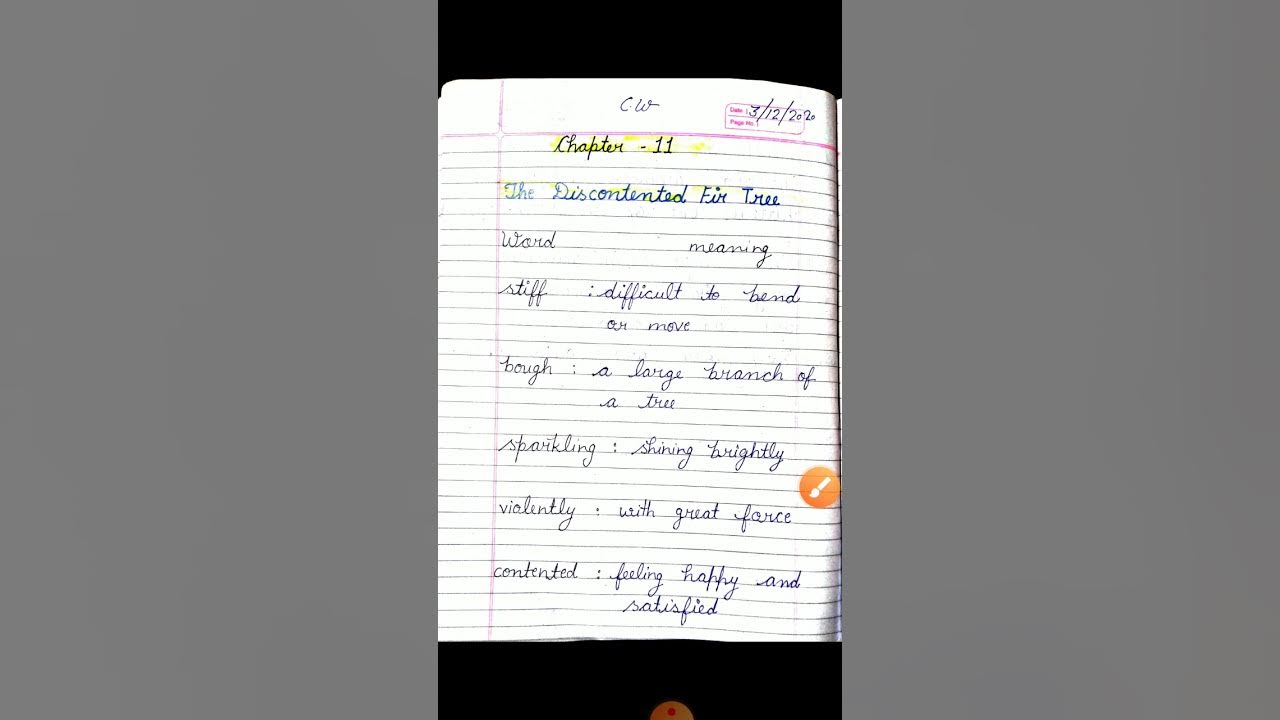 C.W
Date : 3/12/2020
Page No.
Chapter - 11
The Discontented Fir Tree
Word meaning
stiff : difficult to bend
or move
bough : a large branch of
a tree
sparkling : shining brightly
violently : with great force
contented : feeling happy and
satisfied